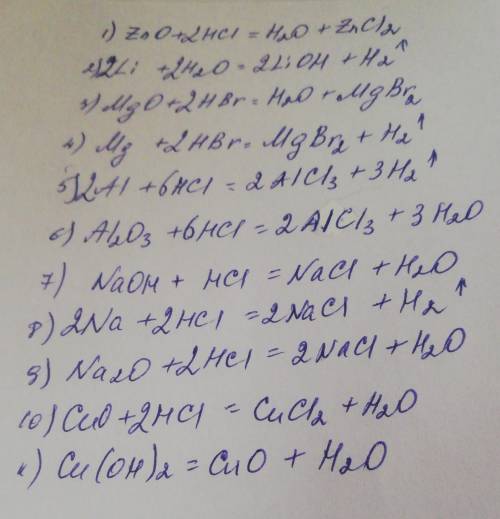 1) ZnO + 2HCl = H₂O + ZnCl₂
2) 2Li + 2H₂O = 2LiOH + H₂↑
3) MgO + 2HBr = H₂O + MgBr₂
4) Mg + 2HBr = MgBr₂ + H₂↑
5) 2Al + 6HCl = 2AlCl₃ + 3H₂↑
6) Al₂O₃ + 6HCl = 2AlCl₃ + 3H₂O
7) NaOH + HCl = NaCl + H₂O
8) 2Na + 2HCl = 2NaCl + H₂↑
9) Na₂O + 2HCl = 2NaCl + H₂O
10) CuO + 2HCl = CuCl₂ + H₂O
11) Cu(OH)₂ = CuO + H₂O